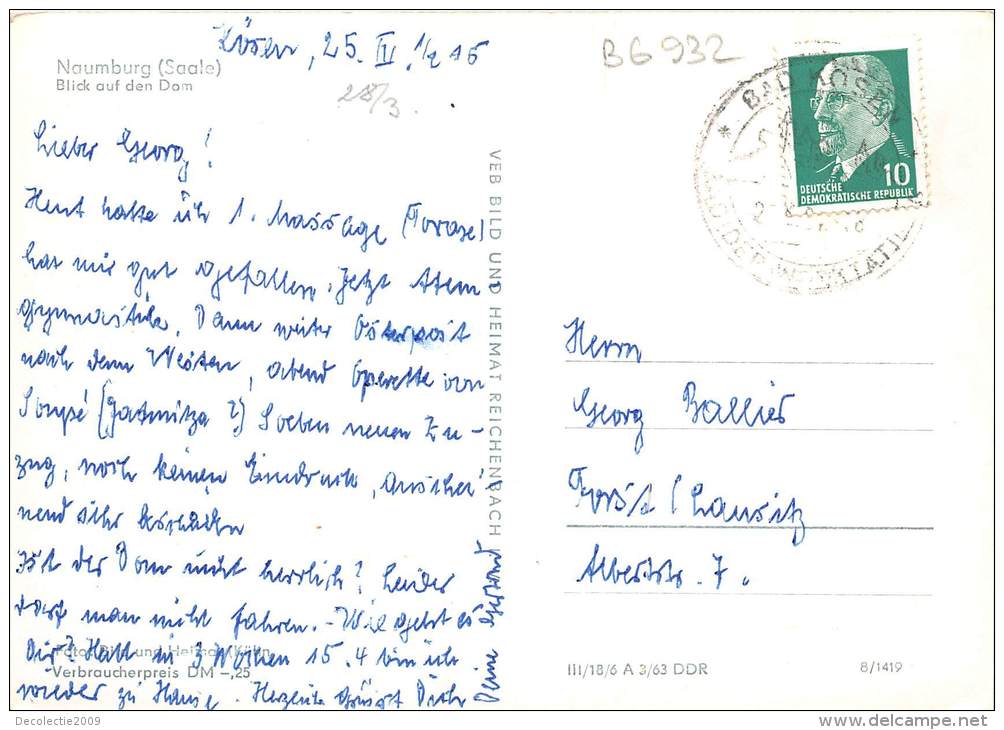 Kösen, 25. IV. 1/2 15
B6 932
28/3
Naumburg (Saale)
Blick auf den Dom
Lieber Georg!
Heut hatte ich 1. Massage
hat mir gut gefallen. Jetzt Atem
gymnastik, Dann weiter Osterpost
nach dem Westen, abend Operette von
(Jadwiga?) Soeben neuen Zu-
zug, noch keinen Eindruck, anschei
nend sehr bescheiden
Ist der Dom nicht herrlich? Leider
darf man nicht fahren. - Wie geht es
Dir? Halt in 3 Wochen 15.4 bin ich
wieder zu Hause. Herzlich grüsst Dich
Deine
Foto: Bild und Heimat
Verbraucherpreis DM -,25
VEB BILD UND HEIMAT REICHENBACH
* BAD KÖSEN *
10
DEUTSCHE
DEMOKRATISCHE REPUBLIK
Herrn
Georg Ballier
Forst / Lausitz
Albertstr. 7.
III/18/6 A 3/63 DDR
8/1419
Decolectie2009
delcampe.net